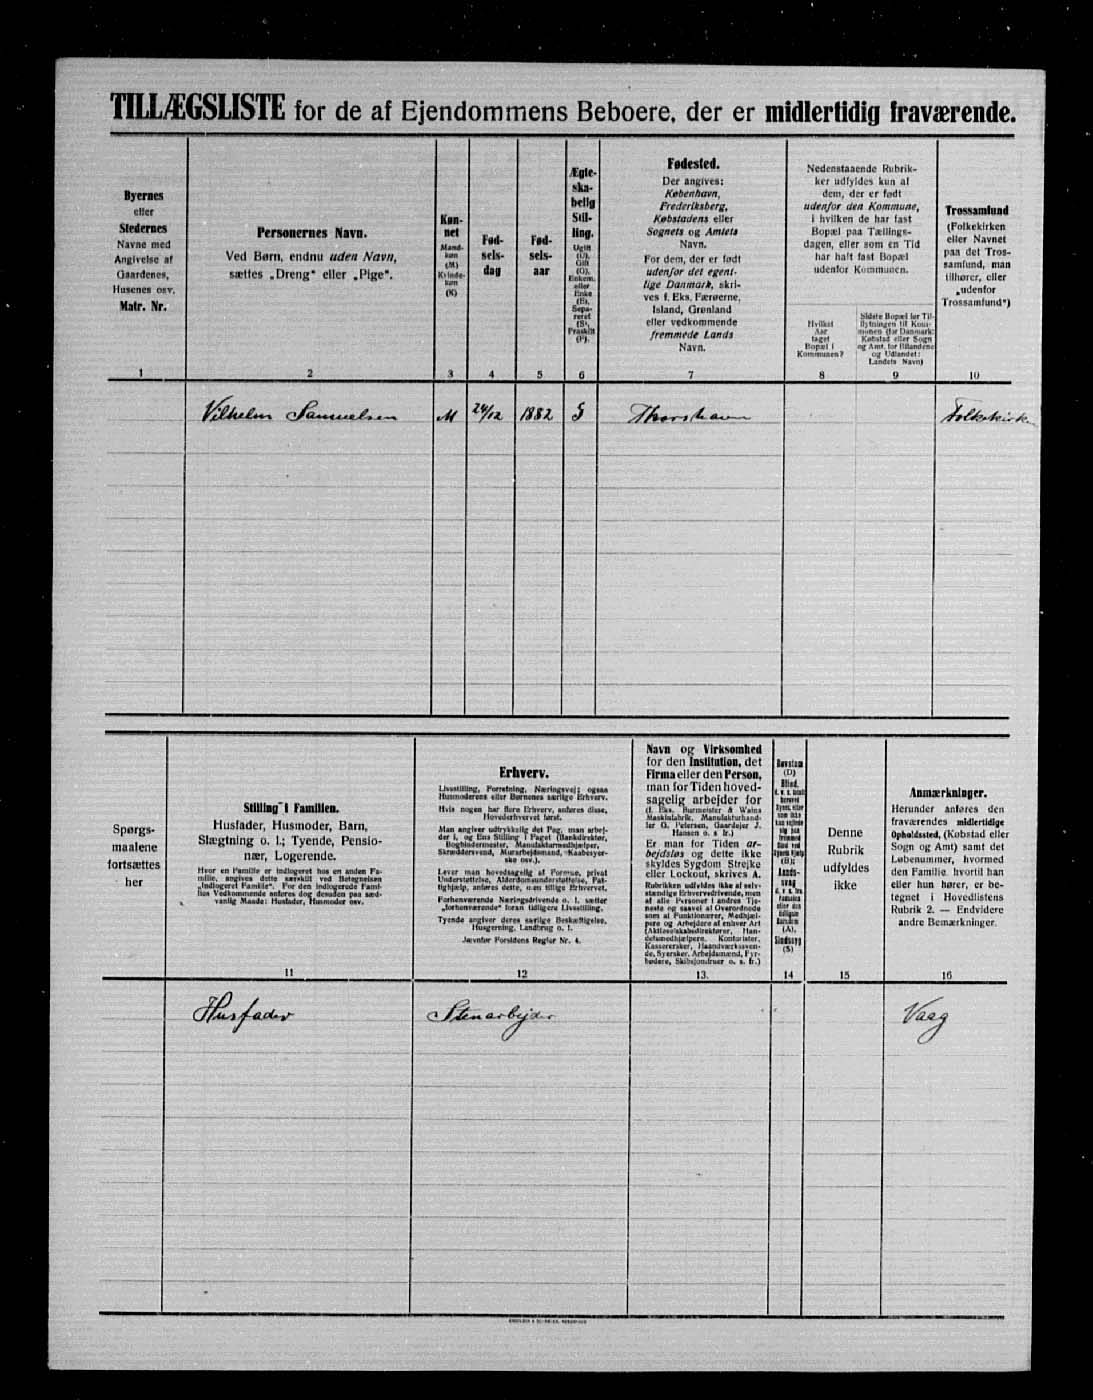 TILLÆGSLISTE for de af Ejendommens Beboere, der er midlertidig fraværende.
Byernes
eller
Stedernes
Navne med
Angivelse af
Gaardenes,
Husenes osv.
Matr. Nr.
Personernes Navn.
Ved Børn, endnu uden Navn,
sættes „Dreng“ eller „Pige“.
Køn-
net
Mand-
køn
(M)
Kvinde-
køn
(K)
Fød-
sels-
dag
Fød-
sels-
aar
Ægte-
ska-
belig
Stil-
ling.
Ugift
(U),
Gift
(G),
Enkem.
eller
Enke
(E),
Sepa-
reret
(S),
Fraskilt
(F).
Fødested.
Der angives:
København,
Frederiksberg,
Købstadens eller
Sognets og Amtets
Navn.
For dem, der er født
udenfor det egent-
lige Danmark, skri-
ves f. Eks. Færøerne,
Island, Grønland
eller vedkommende
fremmede Lands
Navn.
Nedenstaaende Rubrik-
ker udfyldes kun af
dem, der er født
udenfor den Kommune,
i hvilken de har fast
Bopæl paa Tællings-
dagen, eller som en Tid
har haft fast Bopæl
udenfor Kommunen.
Hvilket
Aar
taget
Bopæl i
Kommunen?
Sidste Bopæl før Til-
flytningen til Kom-
munen (for Danmark:
Købstad eller Sogn
og Amt, for Bilandene
og Udlandet:
Landets Navn)
Trossamfund
(Folkekirken
eller Navnet
paa det Tros-
samfund, man
tilhører, eller
„udenfor
Trossamfund“)
1 2 3 4 5 6 7 8 9 10
Vilhelm Samuelsen M 24/12 1882 G Thorshavn Folkekirken
Spørgs-
maalene
fortsættes
her
Stilling i Familien.
Husfader, Husmoder, Barn,
Slægtning o. l.; Tyende, Pensio-
nær, Logerende.
Hvor en Familie er indlogeret hos en anden Fa-
milie, angives dette særskilt ved Betegnelsen
„Indlogeret Familie“. For den indlogerede Fami-
lies Vedkommende anføres dog desuden paa sæd-
vanlig Maade: Husfader, Husmoder osv.
Erhverv.
Livsstilling, Forretning, Næringsvej; ogsaa
Husmoderens eller Børnenes særlige Erhverv.
Hvis nogen har flere Erhverv, anføres disse,
Hovederhvervet først.
Man angiver udtrykkelig det Fag, man arbej-
der i, og Ens Stilling i Faget (Bankdirektør,
Bogbindermester, Manufakturmedhjælper,
Skræddersvend, Murarbejdsmand, Kaabesyer-
ske osv.).
Lever man hovedsagelig af Formue, privat
Understøttelse, Alderdomsunderstøttelse, Fat-
tighjælp, anføres dette, men tillige Erhvervet.
Forhenværende Næringsdrivende o. l. sætter
„forhenværende“ foran tidligere Livsstilling.
Tyende angiver deres særlige Beskæftigelse,
Husgerning, Landbrug o. l.
Jævnfør Forsidens Regler Nr. 4.
Navn og Virksomhed
for den Institution, det
Firma eller den Person,
man for Tiden hoved-
sagelig arbejder for
(f. Eks. Burmeister & Wains
Maskinfabrik, Manufakturhand-
ler G. Petersen, Gaardejer J.
Hansen o. s. fr.)
Er man for Tiden ar-
bejdsløs og dette ikke
skyldes Sygdom Strejke
eller Lockout, skrives A.
Rubrikken udfyldes ikke af selv-
stændige Erhvervsdrivende, men
af alle Personer i andres Tje-
neste og saavel af Overordnede
som af Funktionærer, Medhjæl-
pere og Arbejdere af enhver Art
(Aktieselskabsdirektører, Han-
delsmedhjælpere, Kontorister,
Kassererskør, Haandværkssven-
de, Syersker, Arbejdsmænd, Fyr-
bødere, Skibsjomfruer o. s. fr.)
Døvstum
(D)
Blind,
(B);
Aands-
svag
(A),
Sindssyg
(S)
Denne
Rubrik
udfyldes
ikke
Anmærkninger.
Herunder anføres den
fraværendes midlertidige
Opholdssted, (Købstad eller
Sogn og Amt) samt det
Løbenummer, hvormed
den Familie, hvortil han
eller hun hører, er be-
tegnet i Hovedlistens
Rubrik 2. — Endvidere
andre Bemærkninger.
11 12 13. 14 15 16
Husfader Stenarbejder Vaag